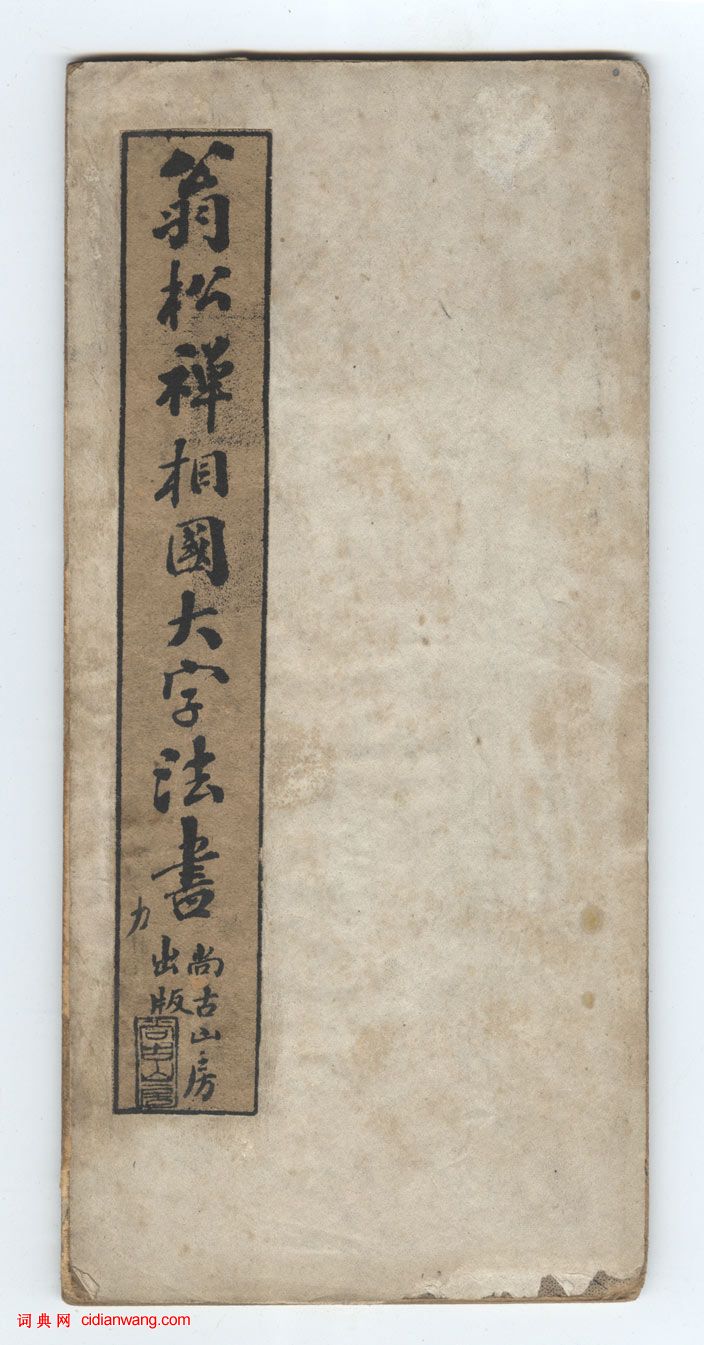 翁松禪相國大字法書
力
尚古山房
出版
尚古山房
词典网 cidianwang.com